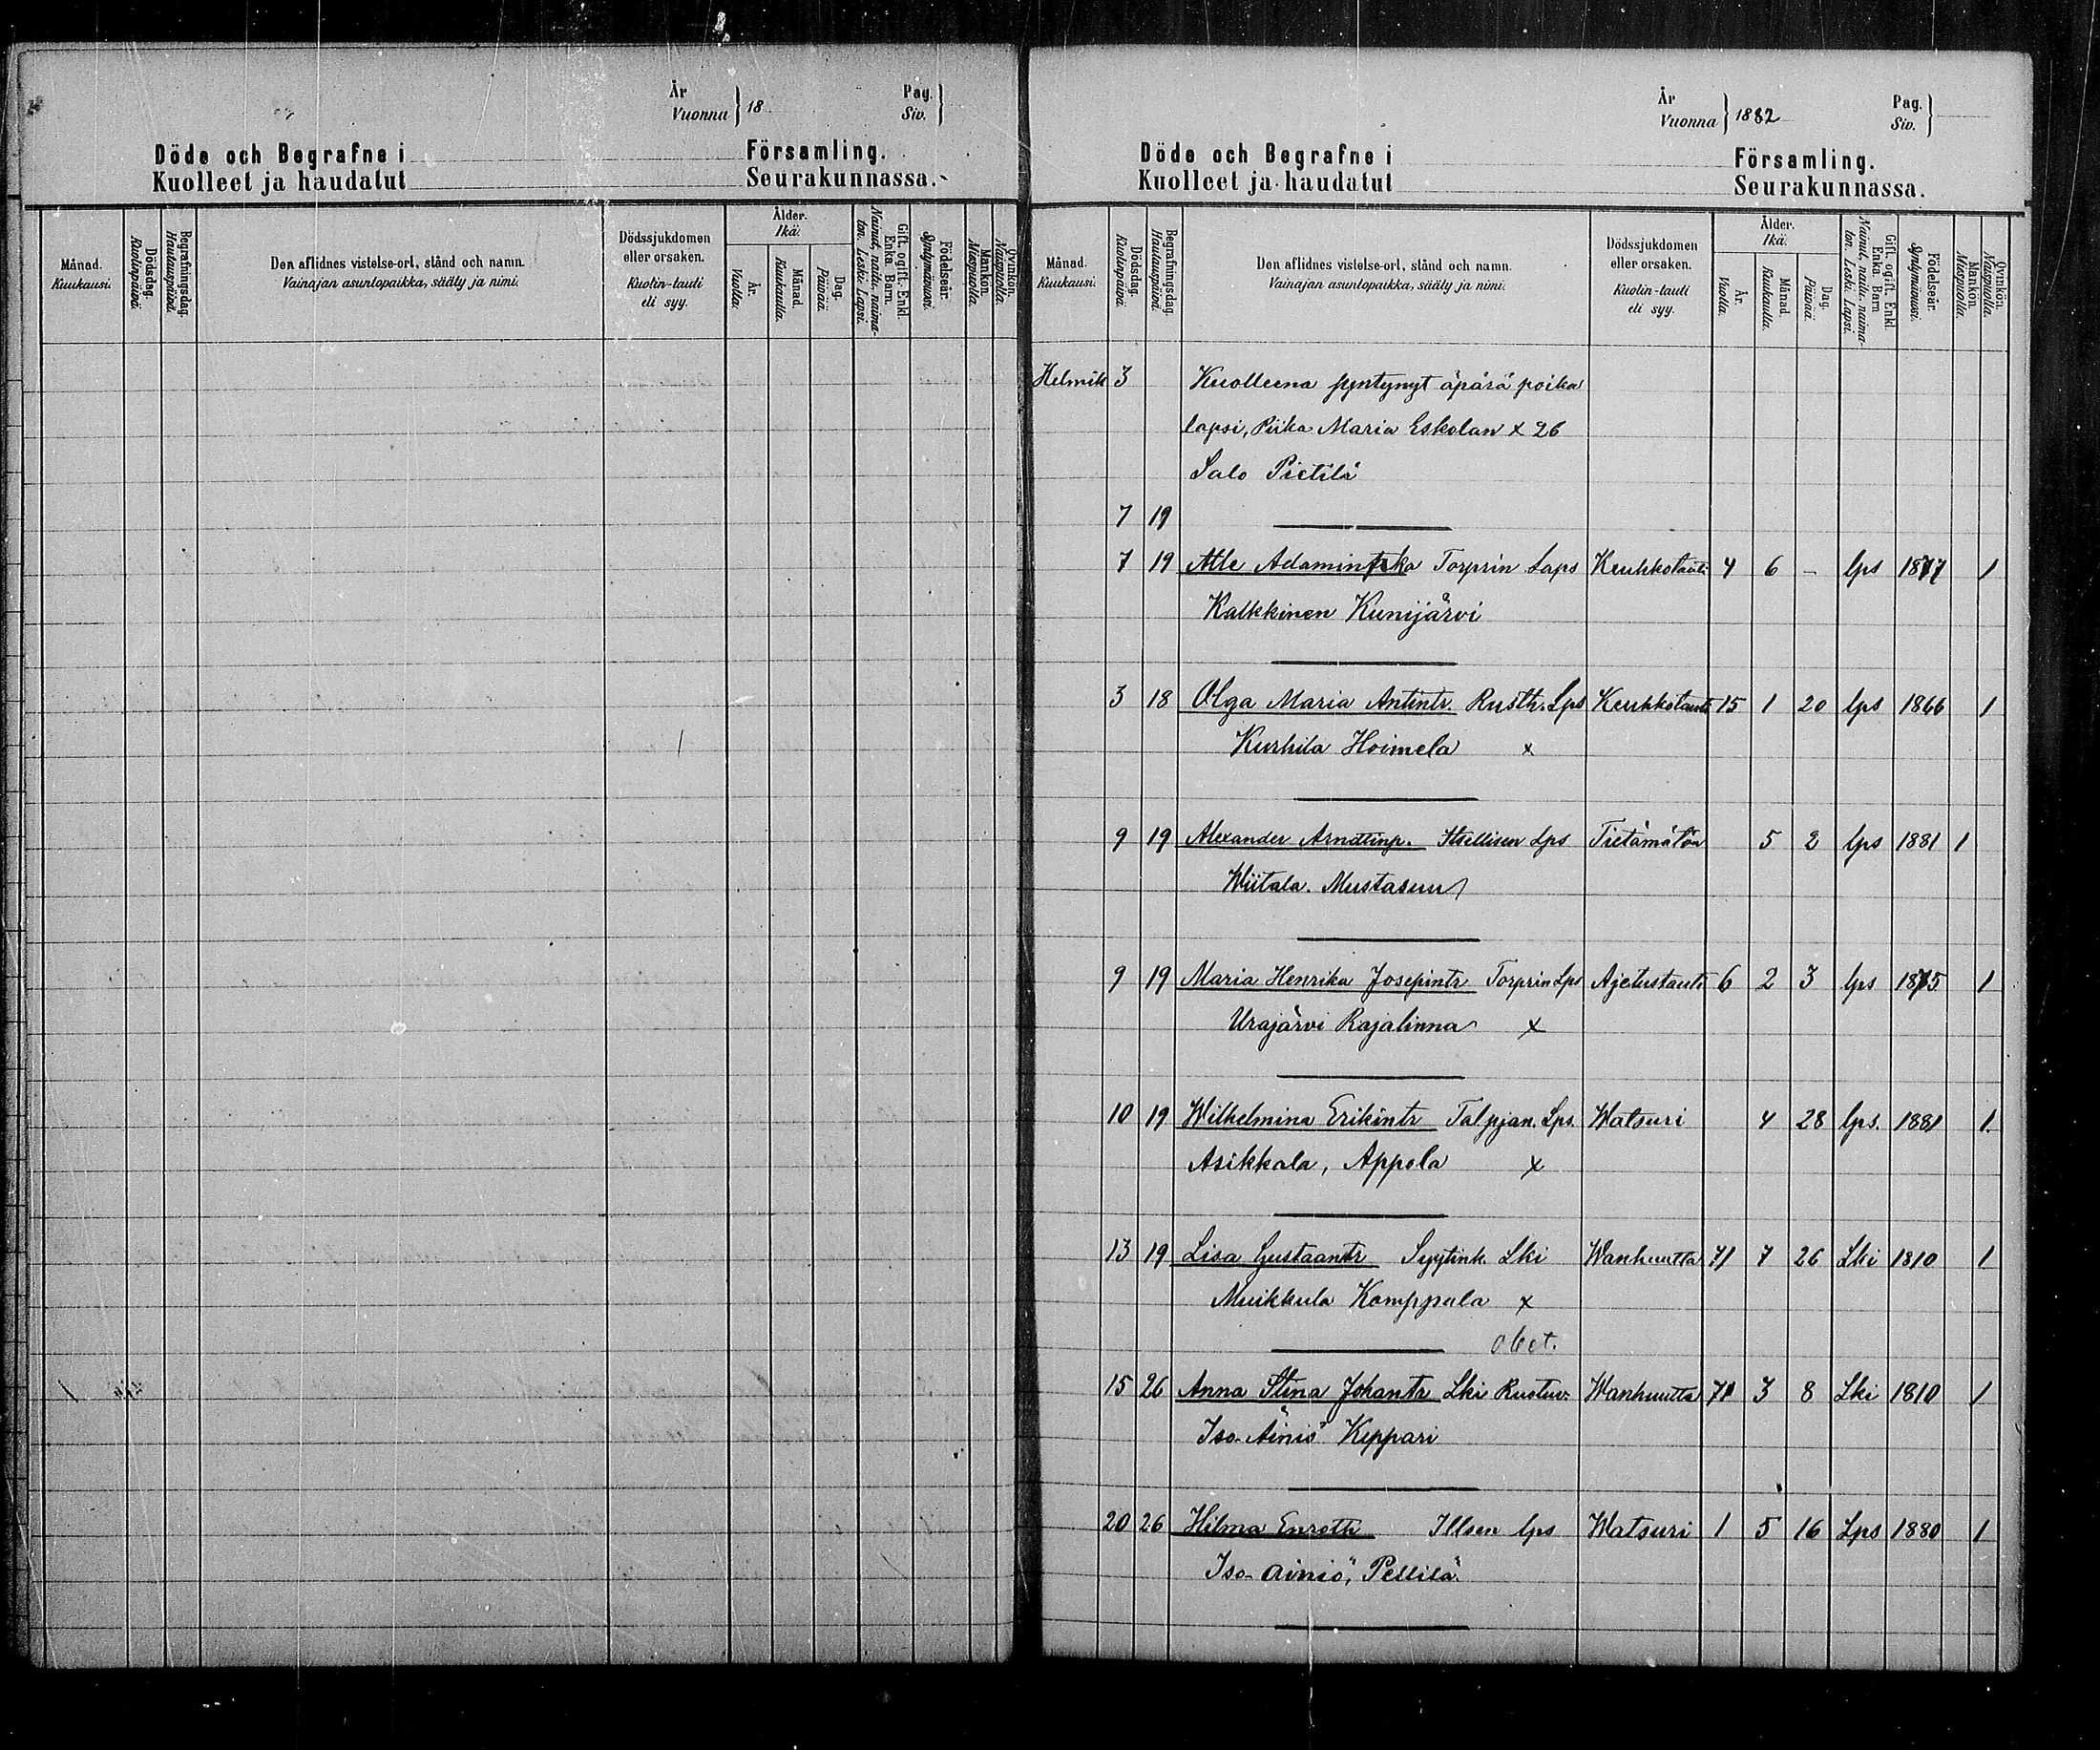 År
Vuonna } 18
Pag.
Siv. }
Döde och Begrafne i Församling.
Kuolleet ja haudatut Seurakunnassa.
Månad. Kuukausi.
Dödsdag. Kuolinpäivä.
Begrafningsdag. Hautauspäivä.
Den aflidnes vistelse-ort, stånd och namn.
Vainajan asuntopaikka, sääty ja nimi.
Dödssjukdomen eller orsaken.
Kuolin-tauti eli syy.
Ålder. Ikä.
År. Vuotta.
Månad. Kuukautta.
Dag. Päivää.
Gift, ogift. Enkl. Enka. Barn.
Nainut, naitu, naimaton. Leski. Lapsi.
Födelseår. Syntymävuosi.
Mankön. Miespuolia.
Qvinkön. Naispuolia.
År
Vuonna } 1882
Pag.
Siv. }
Döde och Begrafne i Församling.
Kuolleet ja haudatut Seurakunnassa.
Månad. Kuukausi.
Dödsdag. Kuolinpäivä.
Begrafningsdag. Hautauspäivä.
Den aflidnes vistelse-ort, stånd och namn.
Vainajan asuntopaikka, sääty ja nimi.
Dödssjukdomen eller orsaken.
Kuolin-tauti eli syy.
Ålder. Ikä.
År. Vuotta.
Månad. Kuukautta.
Dag. Päivää.
Gift, ogift. Enkl. Enka. Barn
Nainut, naitu, naimaton. Leski. Lapsi.
Födelseår. Syntymävuosi.
Mankön. Miespuolia.
Qvinkön. Naispuolia.
Helmik 3 Kuolleena syntynyt äpärä poika
lapsi, Piika Maria Eskolan x 26
Salo Pietilä
7 19
7 19 Torprin Laps Keuhkotauti 4 6 - lps 1877 1
Kalkkinen Kunijärvi
3 18 Olga Maria Antintr. Rusth. Lps Keuhkotauti 15 1 20 lps 1866 1
Kurhila Hoimela x
9 19 Alexander Itsellisen Lps Tietämätön 5 2 lps 1881 1
Wiitala. Mustasuu
9 19 Maria Henrika Josepintr Torprin Lps Ajetustauti 6 2 3 lps 1875 1
Urajärvi Rajalinna x
10 19 Wilhelmina Erikintr Talpjan. Lps. Watsuri 4 28 lps. 1881 1
Asikkala, Appola x
13 19 Lisa Gustaantr Syytink. Lki Wanhuutta 71 7 26 Lki 1810 1
Muikkula Komppula x
15 26 Anna Stina Johantr Lki Rustuv. Wanhuutta 71 3 8 Lki 1810 1
Iso-Äiniö Keppari
20 26 Hilma Enroth Itlsen lps Watsuri 1 5 16 Lps 1880 1
Iso-äiniö, Pellilä